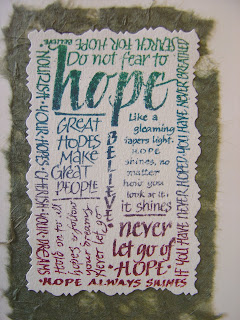 SEARCH FOR HOPE
Do not fear to
hope
GREAT
HOPES
MAKE
GREAT
PEOPLE
Like a
gleaming
tapers light.
HOPE
shines, no
matter
how you
look at it,
it shines
BELIEVE
Hang on to your
hopes, so follow
your dreams
Never let go
never
let go of
•HOPE•
•HOPE ALWAYS SHINES
•NOURISH•YOUR•HOPES•CHERISH•YOUR•DREAMS
IF YOU HAVE NEVER HOPED, YOU HAVE NEVER BREATHED